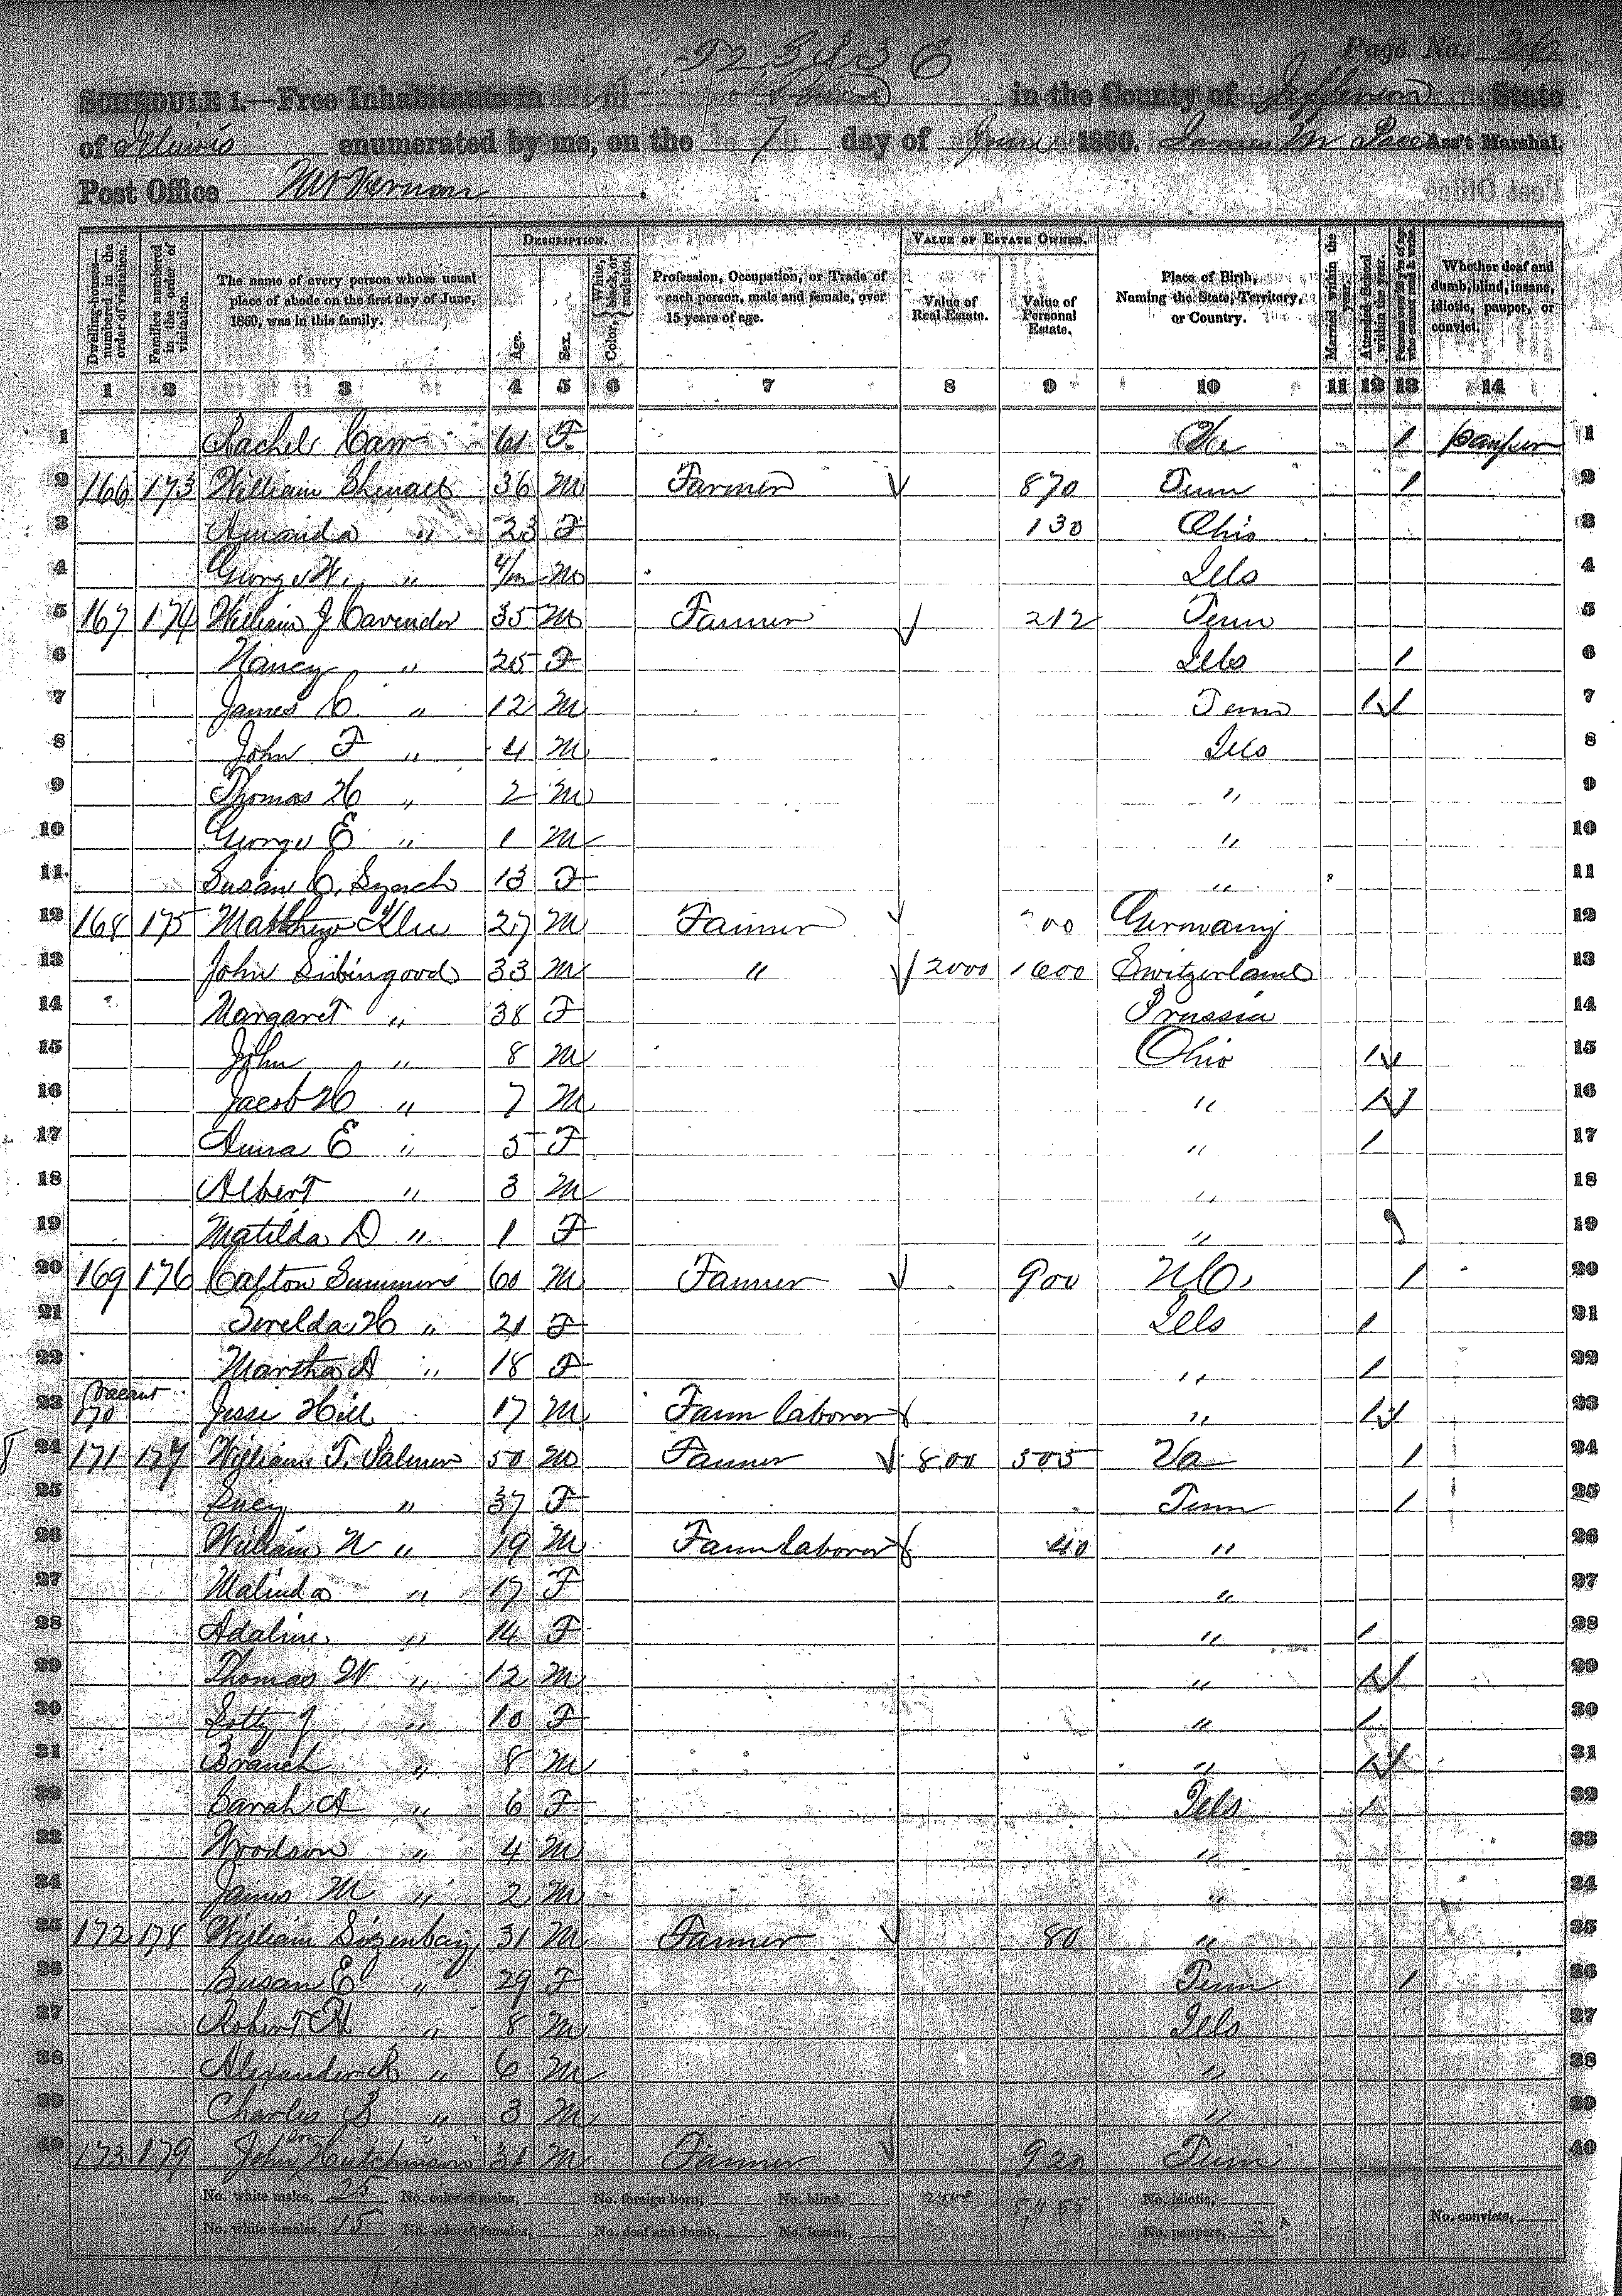 T2 S R 3 E
Page No. 26
SCHEDULE 1.—Free Inhabitants in in the County of Jefferson State
of Illinois enumerated by me, on the 7 day of June 1860. James M Pace Ass't Marshal.
Post Office Mt Vernon.
DESCRIPTION. VALUE OF ESTATE OWNED.
Dwelling-houses—numbered in the order of visitation. Families numbered in the order of visitation. The name of every person whose usual place of abode on the first day of June, 1860, was in this family. Age. Sex. Color, White, black, or mulatto. Profession, Occupation, or Trade of each person, male and female, over 15 years of age. Value of Real Estate. Value of Personal Estate. Place of Birth, Naming the State, Territory, or Country. Married within the year. Attended School within the year. Persons over 20 y'rs of age who cannot read & write. Whether deaf and dumb, blind, insane, idiotic, pauper, or convict.
1 2 3 4 5 6 7 8 9 10 11 12 13 14
1 Rachel Carr 61 F Va 1 pauper 1
2 166 173 William 36 M Farmer 870 Tenn 1 2
3 Amanda " 23 F 130 Ohio 3
4 George W. " 4/12 M Ills 4
5 167 174 William J Cavender 35 M Farmer 212 Tenn 5
6 Nancy " 25 F Ills 1 6
7 James C. " 12 M Tenn 1 7
8 John F " 4 M Ills 8
9 Thomas H " 2 M " 9
10 George E " 1 M " 10
11 Susan C. Lynch 13 F " 11
12 168 175 Matthew Klee 27 M Farmer 00 Germany 12
13 John Sibingood 33 M " 2000 1600 Switzerland 13
14 Margaret " 38 F Prussia 14
15 John " 8 M Ohio 1 15
16 Jacob H " 7 M " 1 16
17 Anna E " 5 F " 1 17
18 Albert " 3 M " 18
19 Matilda D " 1 F " 19
20 169 176 Caston Summers 60 M Farmer 900 N C. 1 20
21 Serelda H " 21 F Ills 1 21
22 Martha A " 18 F " 1 22
vacant
23 170 Jesse Hill 17 M Farm laborer " 1 23
24 171 177 William T. Palmer 50 M Farmer 800 505 Va 1 24
25 Lucy " 37 F Tenn 1 25
26 William N " 19 M Farm laborer 40 " 26
27 Malinda " 17 F " 27
28 Adaline " 14 F " 1 28
29 Thomas W " 12 M " 1 29
30 Lotty J " 10 F " 1 30
31 Branch " 8 M " 1 31
32 Sarah A " 6 F Ills 1 32
33 Woodson " 4 M " 33
34 James M " 2 M " 34
35 172 178 William 31 M Farmer 80 " 35
36 Susan E " 29 F Tenn 1 36
37 Robert A " 8 M Ills 37
38 Alexander R " 6 M " 38
39 Charles B " 3 M " 39
40 173 179 John Hutchinson 31 M Farmer 920 Tenn 40
No. white males, 25 No. colored males, No. foreign born, No. blind, No. idiotic,
No. white females, 15 No. colored females, No. deaf and dumb, No. insane, No. paupers, No. convicts,